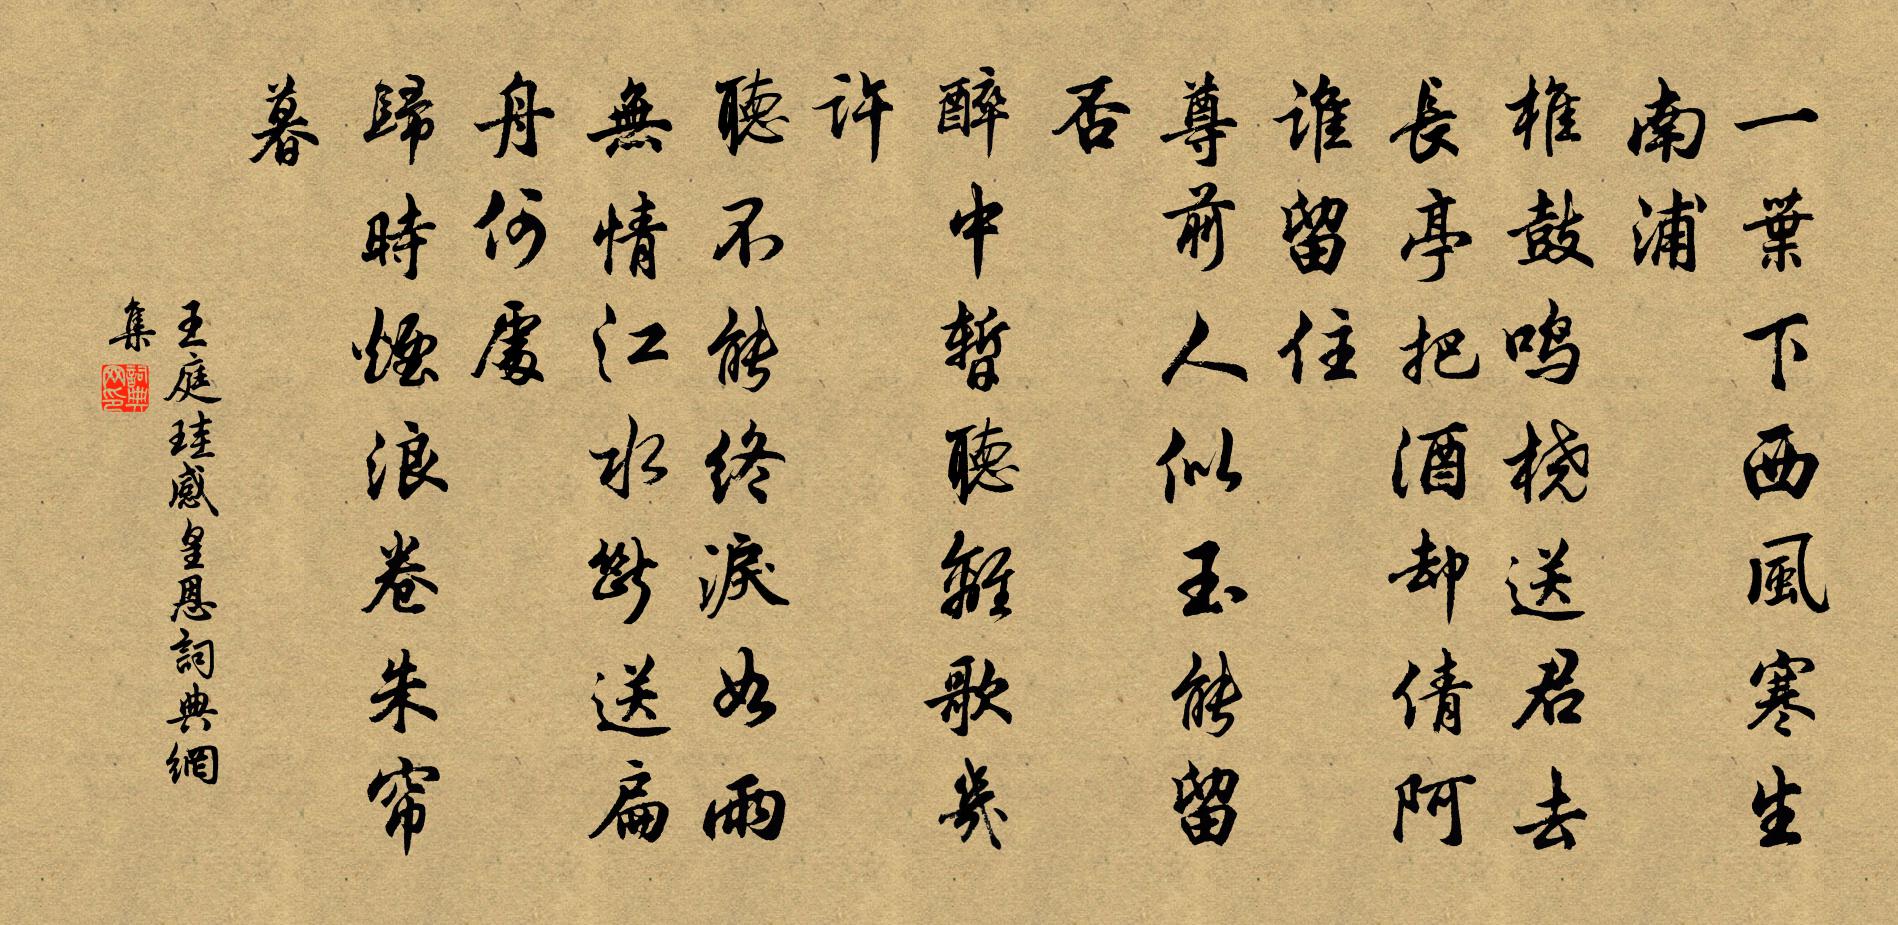 一葉下西風寒生
南浦
椎鼓鳴橈送君去
長亭把酒却倩阿
誰留住
尊前人似玉能留
否
醉中暫聽離歌幾
許
聽不能終淚如雨
無情江水斷送扁
舟何處
歸時煙浪卷朱帘
暮
王庭珪感皇恩詞典網
集
詞典网印